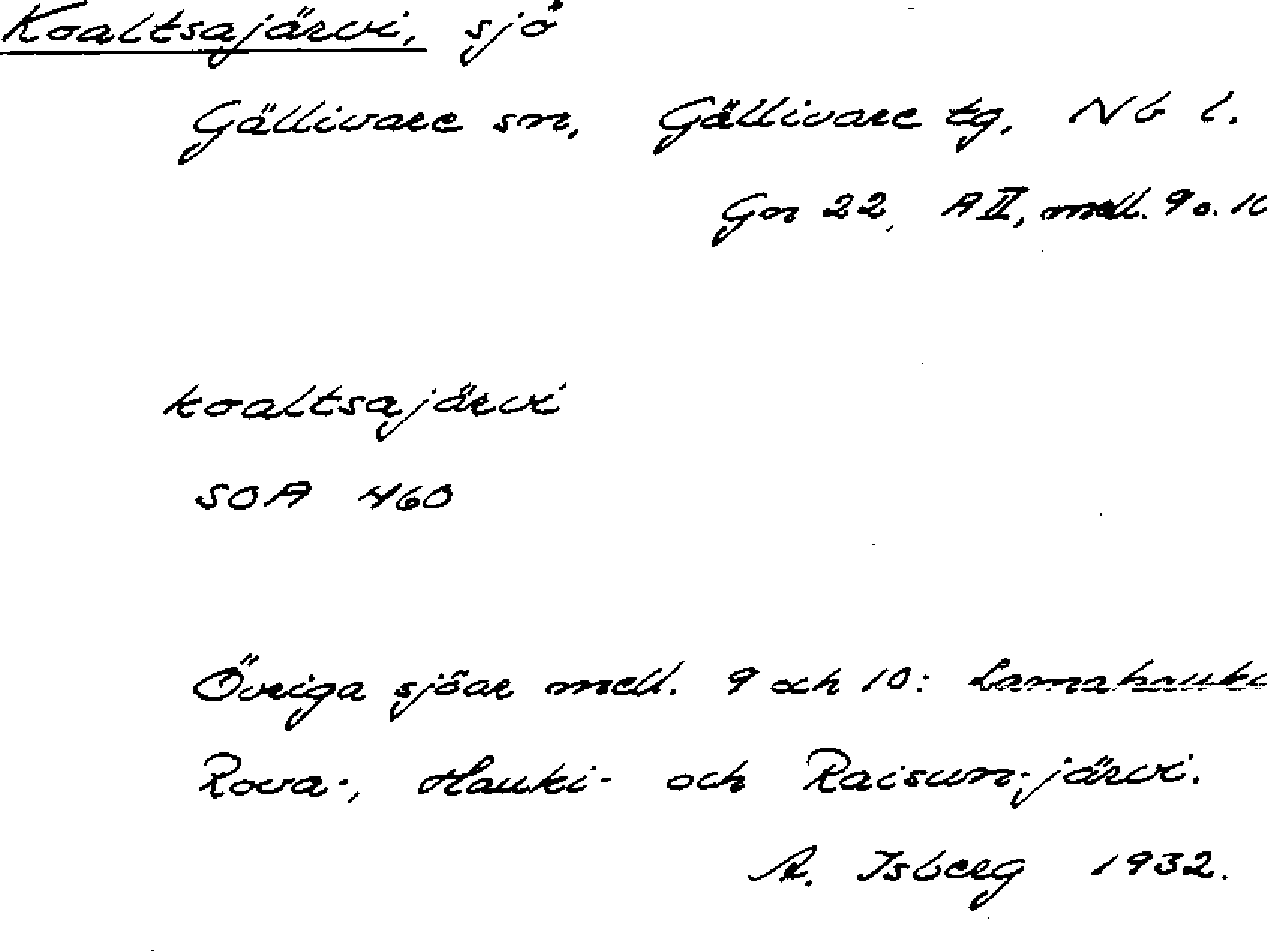 Koaltsajärvi, sjö
Gällivare sn, Gällivare tg, Nb l.
Gn 22, A II, mell. 9 o. 10
koaltsajärvi
SOA 460
Övriga sjöar mell. 9 och 10:
Rova-, Hauki- och Raisun-järvi.
A. Isberg 1932.